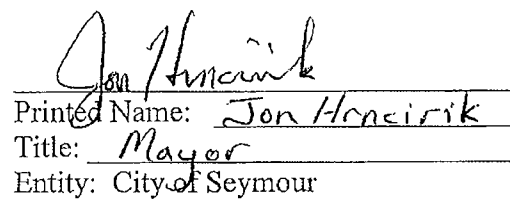 Jon Hrncirik
Printed Name: Jon Hrncirik
Title: Mayor
Entity: City of Seymour